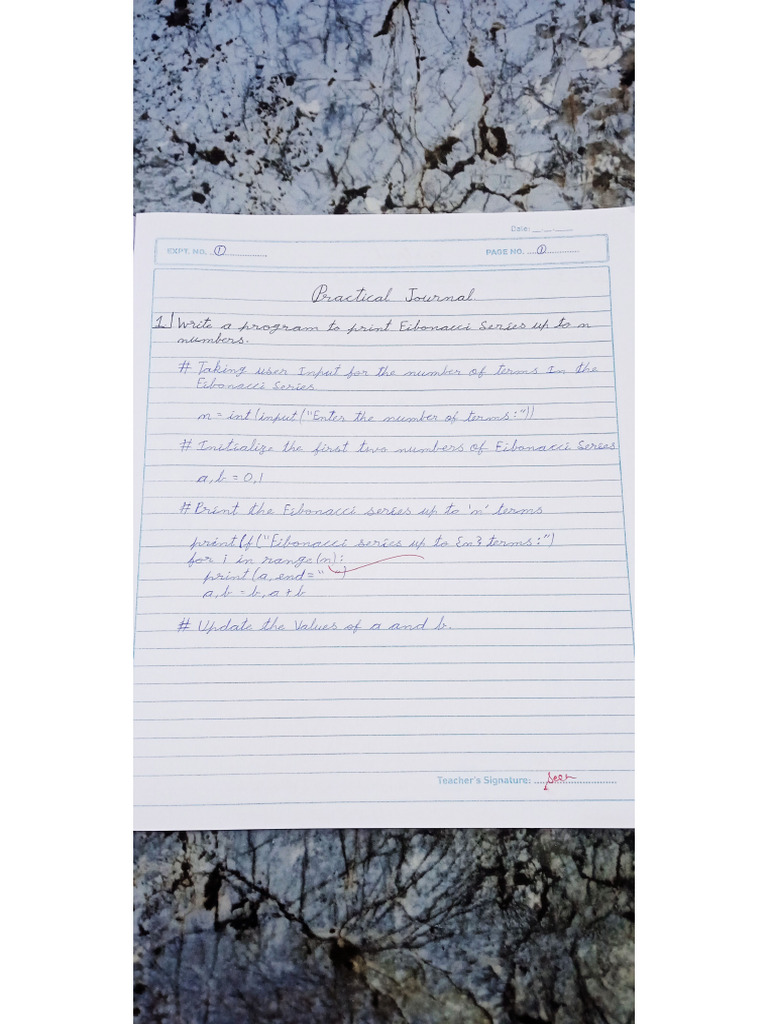 Date: __.__.__
EXPT. NO. 1
PAGE NO. 1
Practical Journal
1] Write a program to print Fibonacci Series up to n
numbers.
# Taking user Input for the number of terms In the
Fibonacci Series
n = int(input("Enter the number of terms:"))
# Initialize the first two numbers of Fibonacci Series
a,b = 0,1
# Print the Fibonacci series up to 'n' terms
print(f("Fibonacci series up to {n} terms:")
for i in range(n):
print(a, end=" ")
a,b = b, a+b
# Update the Values of a and b.
Teacher's Signature: Seen